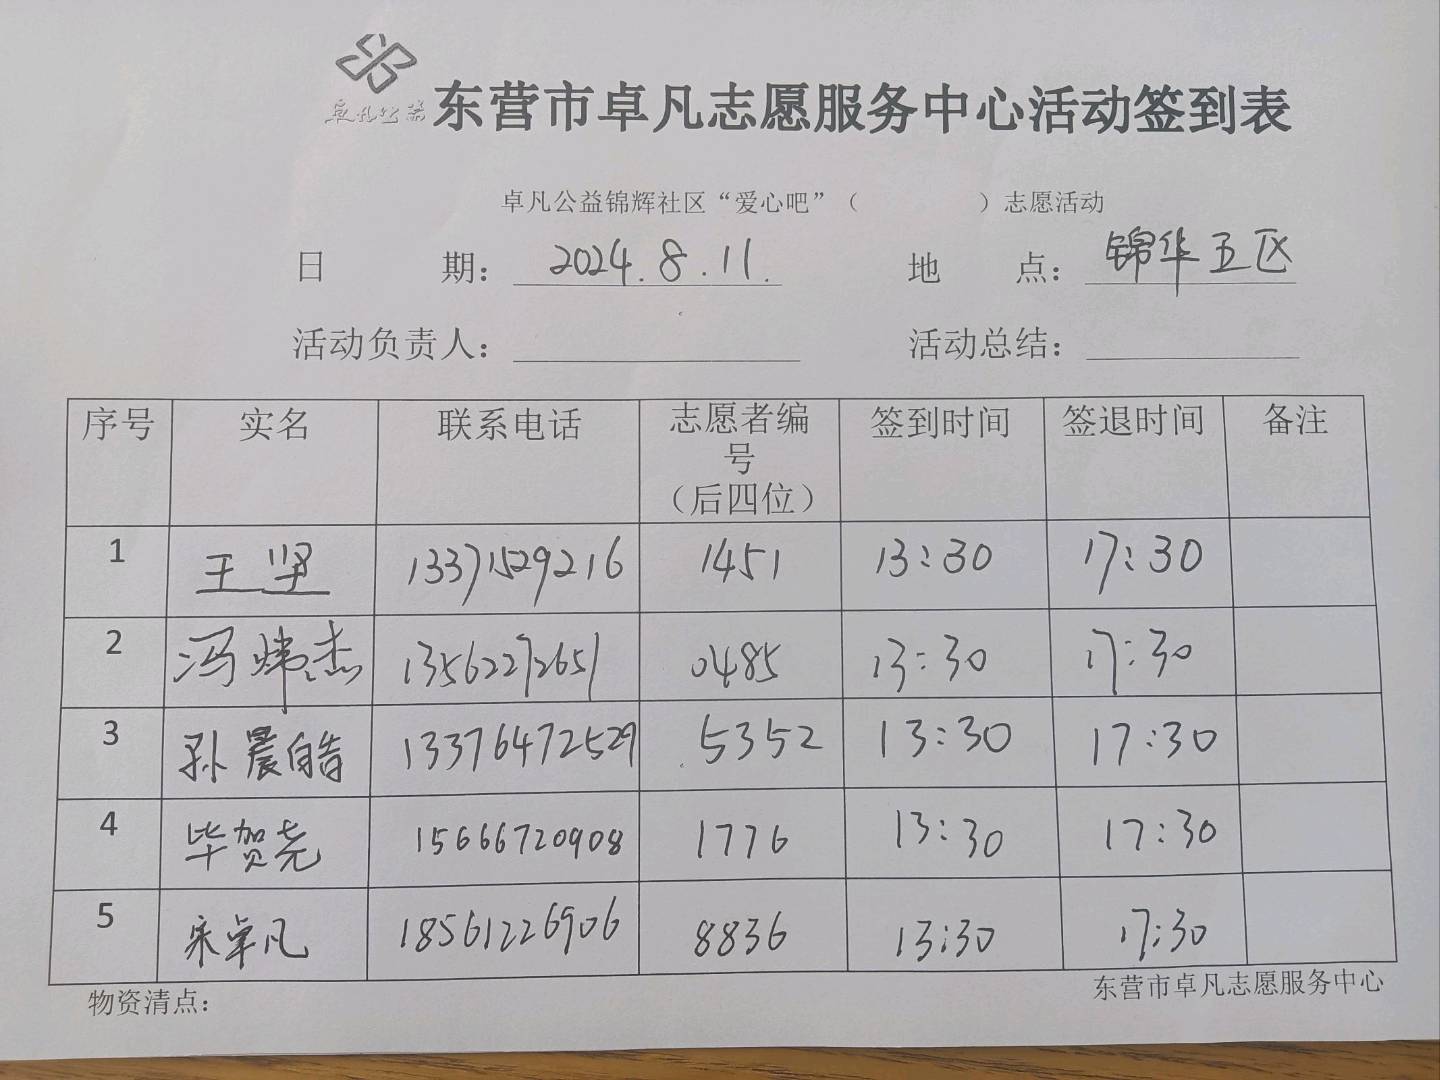 卓凡公益
东营市卓凡志愿服务中心活动签到表
卓凡公益锦辉社区“爱心吧”（ ）志愿活动
日 期： 2024.8.11. 地 点： 锦华五区
活动负责人： 活动总结：
序号 实名 联系电话 志愿者编号（后四位） 签到时间 签退时间 备注
1 王坚 13371529216 1451 13:30 17:30
2 冯炜杰 13562272651 0485 13:30 17:30
3 孙晨皓 13376472529 5352 13:30 17:30
4 毕贺尧 15666720908 1776 13:30 17:30
5 宋卓凡 18561226906 8836 13:30 17:30
物资清点： 东营市卓凡志愿服务中心